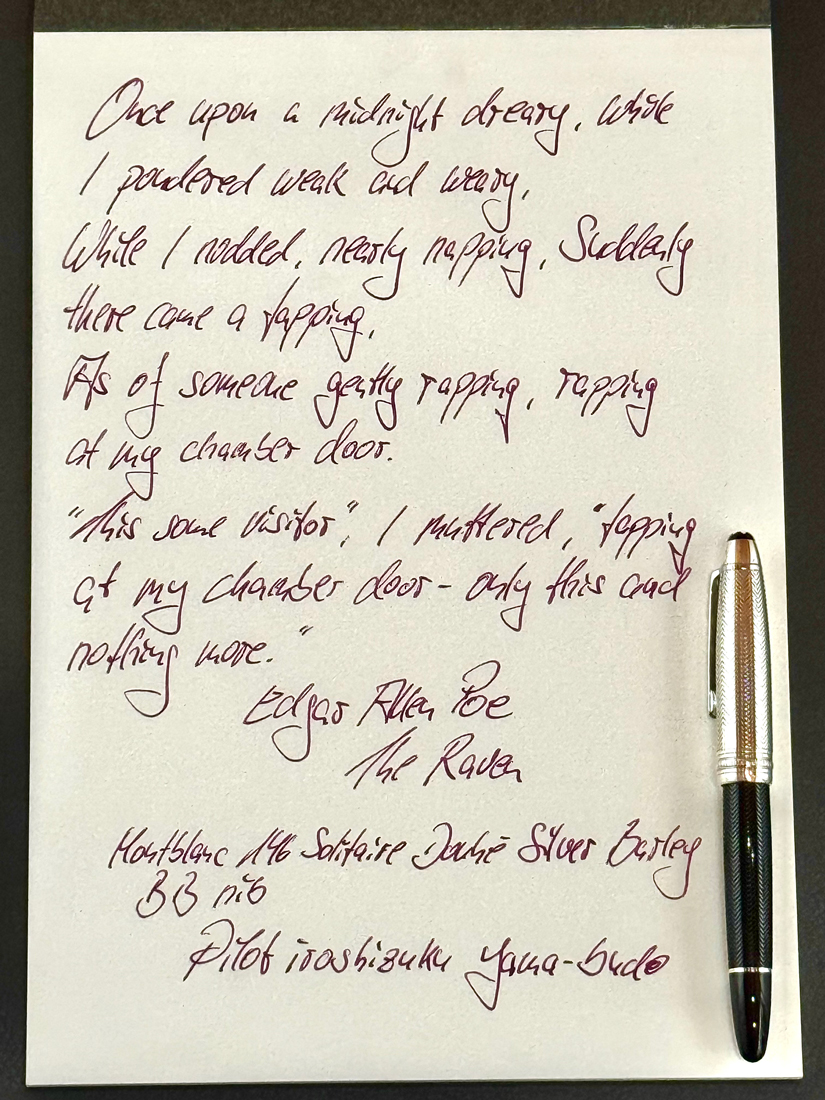 Once upon a midnight dreary, while
I pondered weak and weary,
While I nodded, nearly napping, Suddenly
there came a tapping,
As of someone gently rapping, rapping
at my chamber door.
"This some visitor", I muttered, "tapping
at my chamber door - only this and
nothing more."
Edgar Allen Poe
The Raven
Montblanc 146 Solitaire Doué Silver Barley
BB nib
Pilot iroshizuku Yama-budo